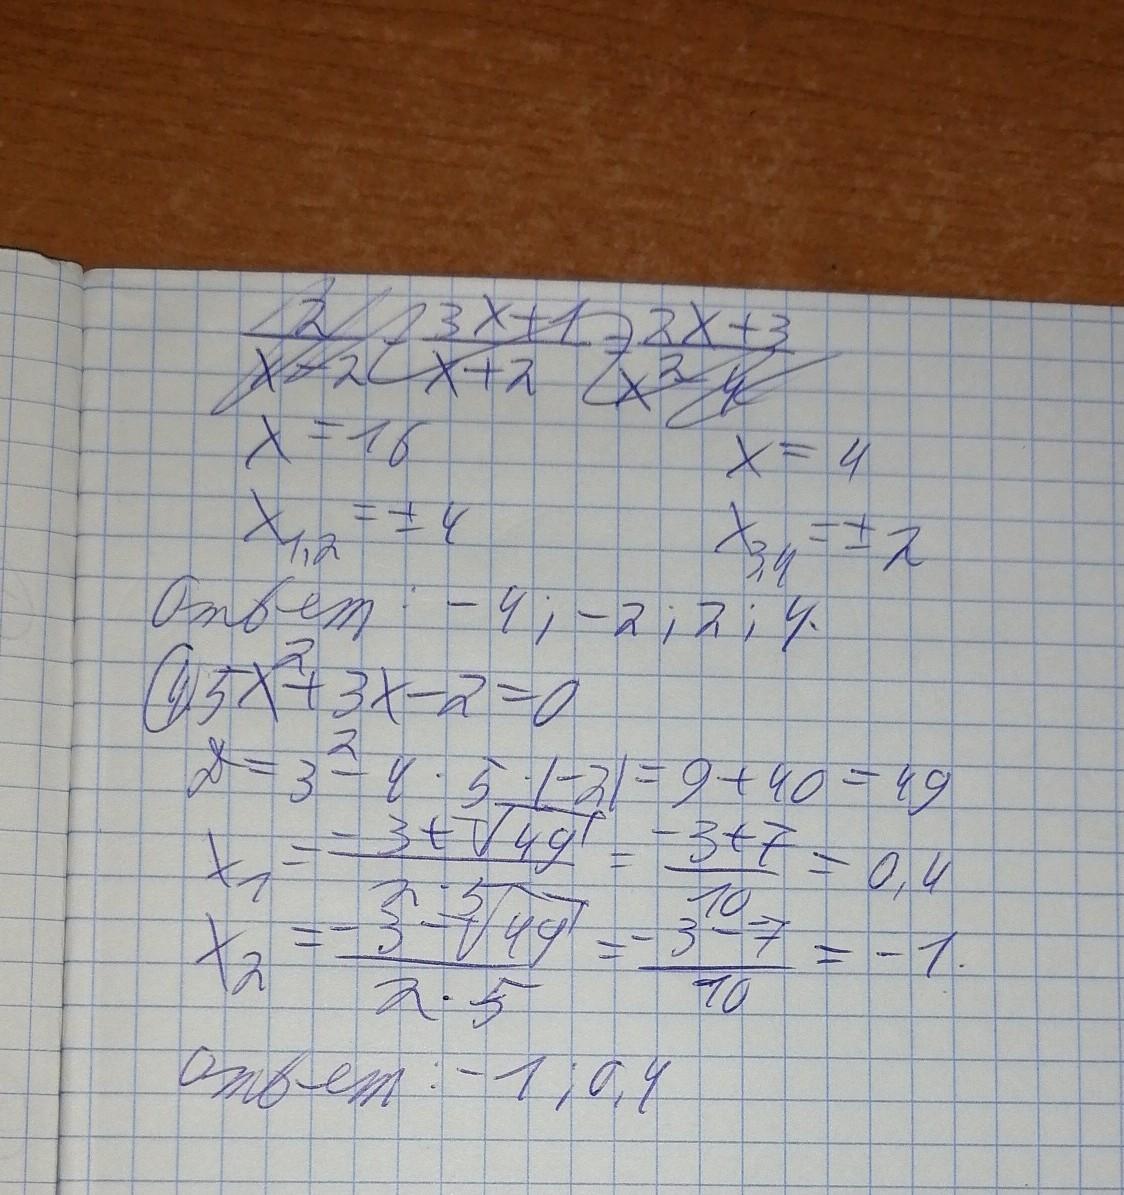 2/(x-2) - (3x+1)/(x+2) = (2x+3)/(x²-4)
x=16 x=4
x₁,₂=±4 x₃,₄=±2
Ответ: -4; -2; 2; 4.
5x²+3x-2=0
D=3²-4·5·|-2|=9+40=49
x₁=(-3+√49)/(2·5)=(-3+7)/10=0,4
x₂=(-3-√49)/(2·5)=(-3-7)/10=-1.
Ответ: -1; 0,4